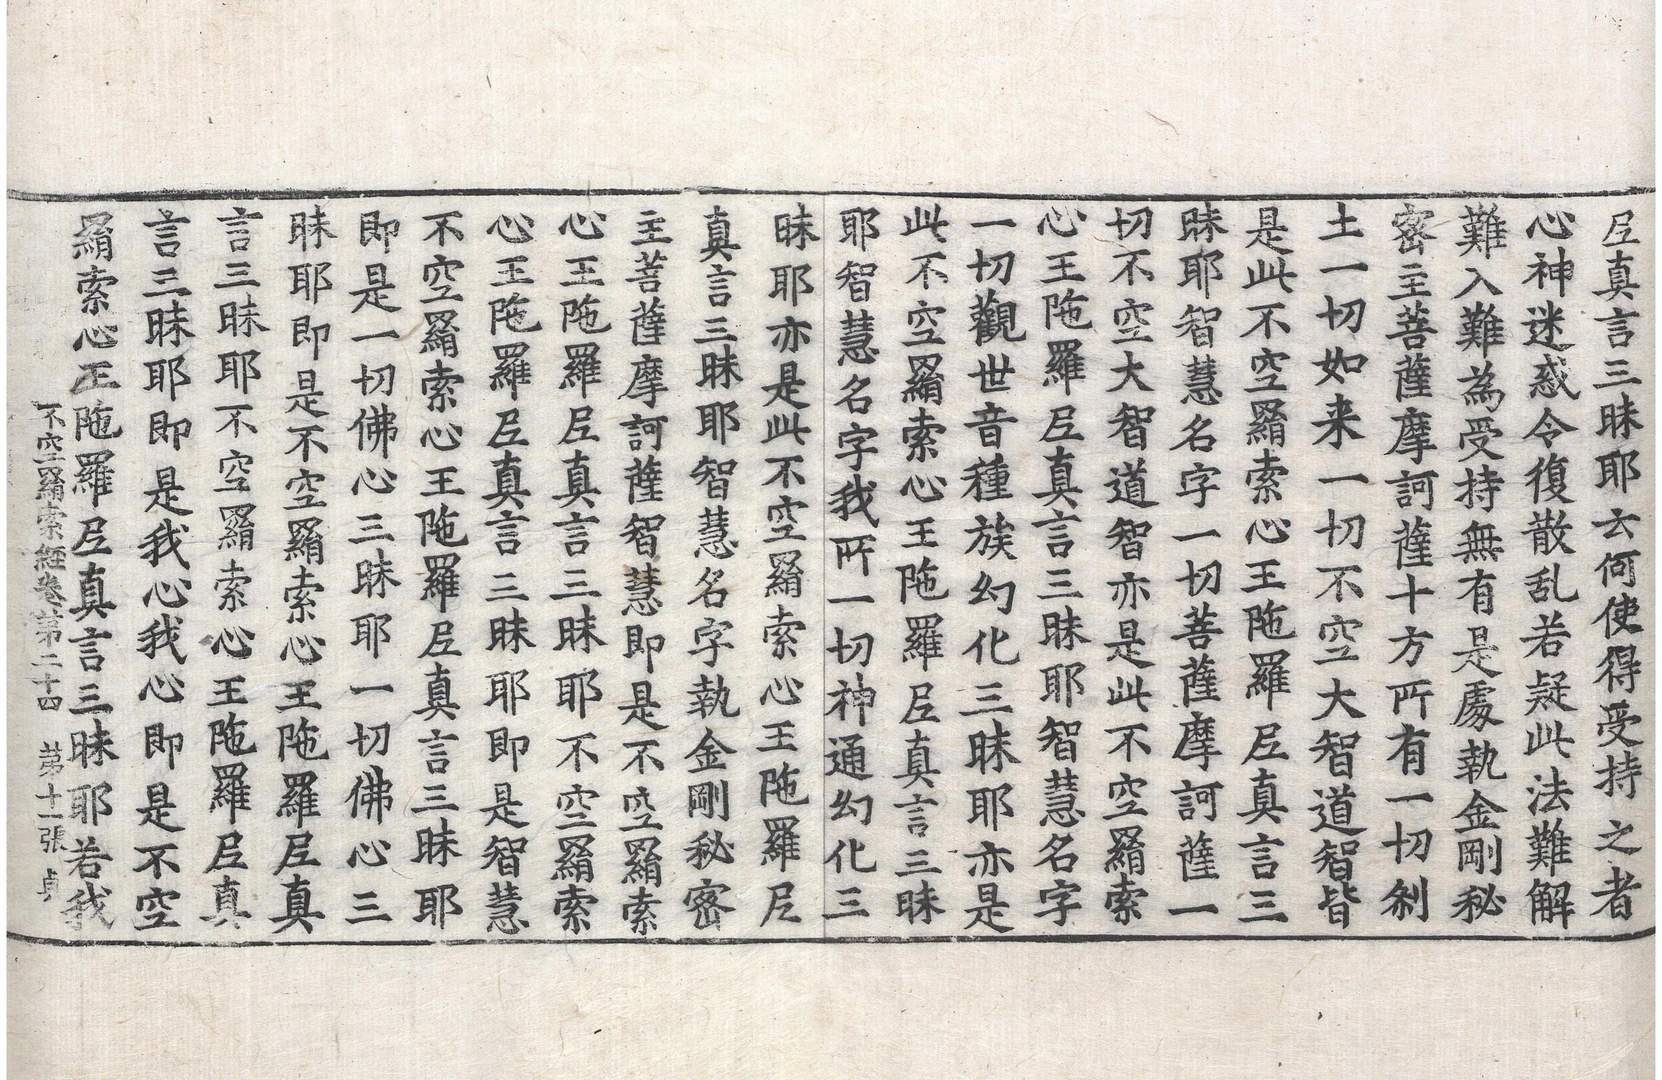 𡰱真言三昧耶云何使得受持之者
心神迷惑令復散乱若疑此法難解
難入難為受持無有是處執金剛秘
密主菩薩摩訶薩十方所有一切刹
土一切如来一切不空大智道智皆
是此不空羂索心王陁羅𡰱真言三
昧耶智慧名字一切菩薩摩訶薩一
切不空大智道智亦是此不空羂索
心王陁羅𡰱真言三昧耶智慧名字
一切觀世音種族幻化三昧耶亦是
此不空羂索心王陁羅𡰱真言三昧
耶智慧名字我所一切神通幻化三
昧耶亦是此不空羂索心王陁羅𡰱
真言三昧耶智慧名字執金剛秘密
主菩薩摩訶薩智慧即是不空羂索
心王陁羅𡰱真言三昧耶不空羂索
心王陁羅𡰱真言三昧耶即是智慧
不空羂索心王陁羅𡰱真言三昧耶
即是一切佛心三昧耶一切佛心三
昧耶即是不空羂索心王陁羅𡰱真
言三昧耶不空羂索心王陁羅𡰱真
言三昧耶即是我心我心即是不空
羂索心王陁羅𡰱真言三昧耶若我
不空羂索經卷第二十四 第十一張 貞